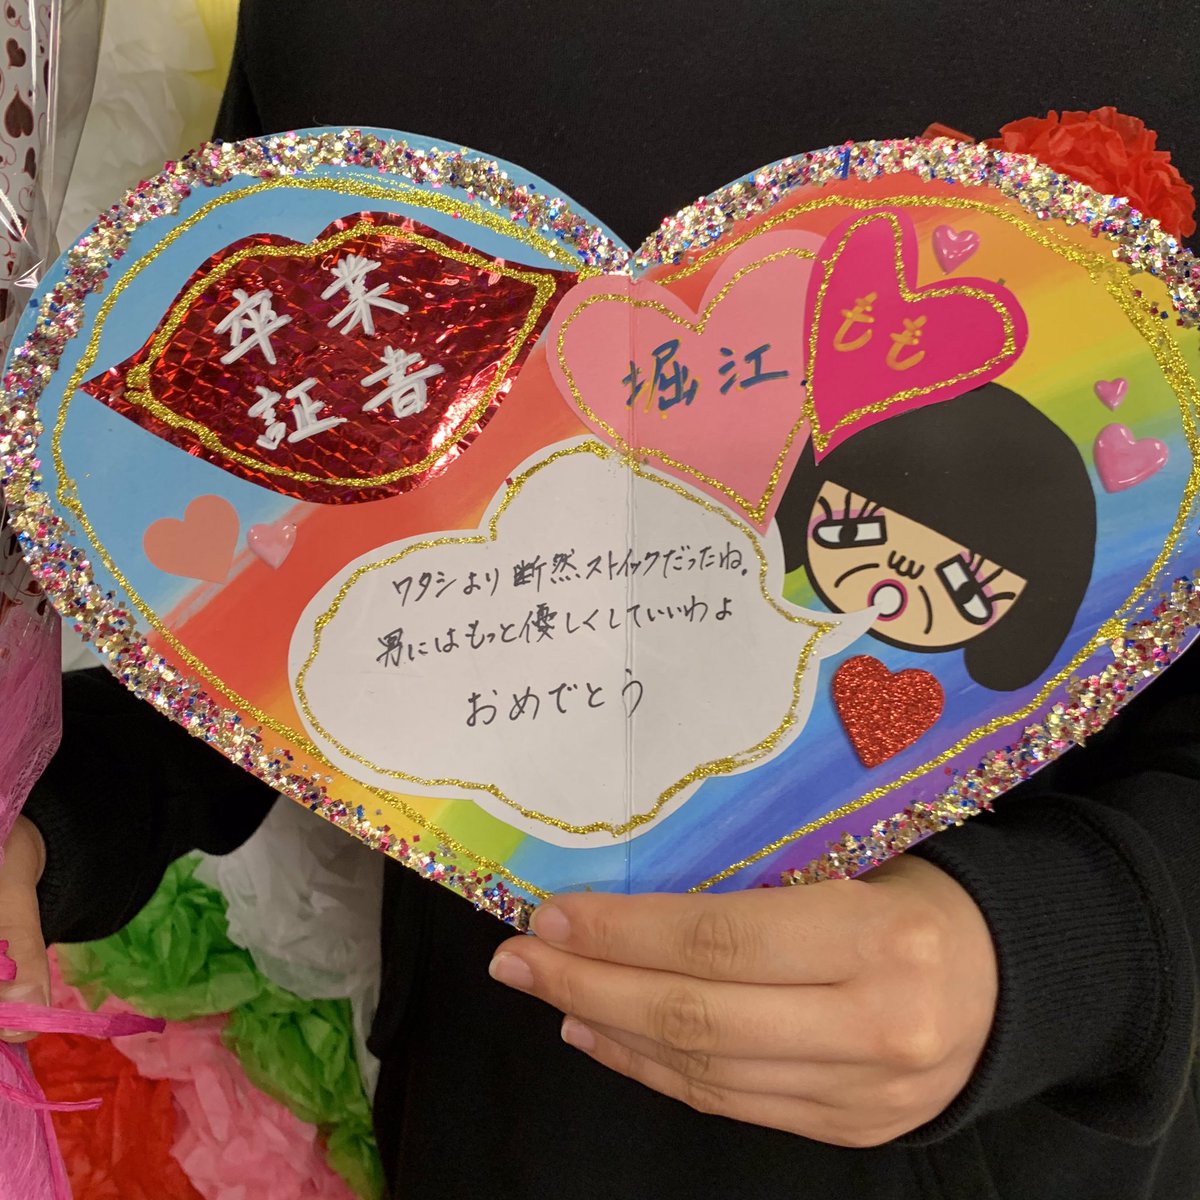 卒業
証者
堀江
もも
ワタシより断然ストイックだったね。
男にはもっと優しくしていいわよ
おめでとう